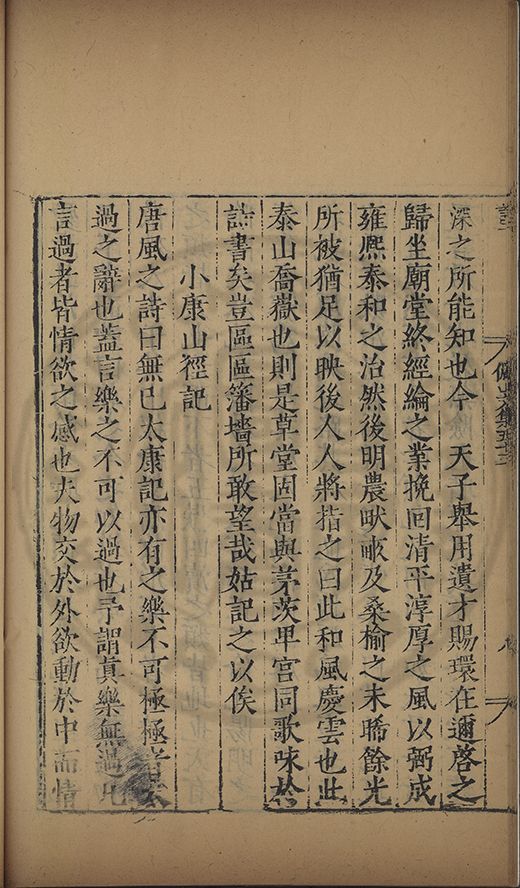 深之所能知也今　天子舉用遺才賜環在邇啓之
歸坐廟堂終經綸之業挽回清平淳厚之風以弼成
雍熈泰和之治然後明農畎畝及桑榆之未晞餘光
所被猶足以映後人人將指之曰此和風慶雲也此
泰山喬嶽也則是草堂固當與茅茨卑宮同歌咏於
詩書矣豈區區籓墻所敢望哉姑記之以俟
小康山徑記
唐風之詩曰無已太康記亦有之樂不可極極者
過之辭也蓋言樂之不可以過也予謂眞樂無過凡
言過者皆情欲之感也夫物交於外欲動於中而情